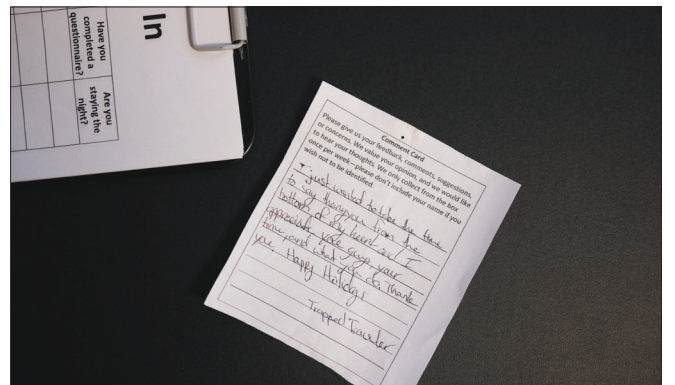 In
Have you
completed a
questionnaire?
Are you
staying the
night?
Comment Card
Please give us your feedback, comments, suggestions,
or concerns. We value your opinion, and we would like
to hear your thoughts. We only collect from the box
once per week – please don't include your name if you
wish not to be identified.
I just wanted to take the time
to say thankyou from the
bottom of my heart and I
appreciate you guys, your
time, and what you do. Thank
you. Happy Holidays
Trapped Traveler